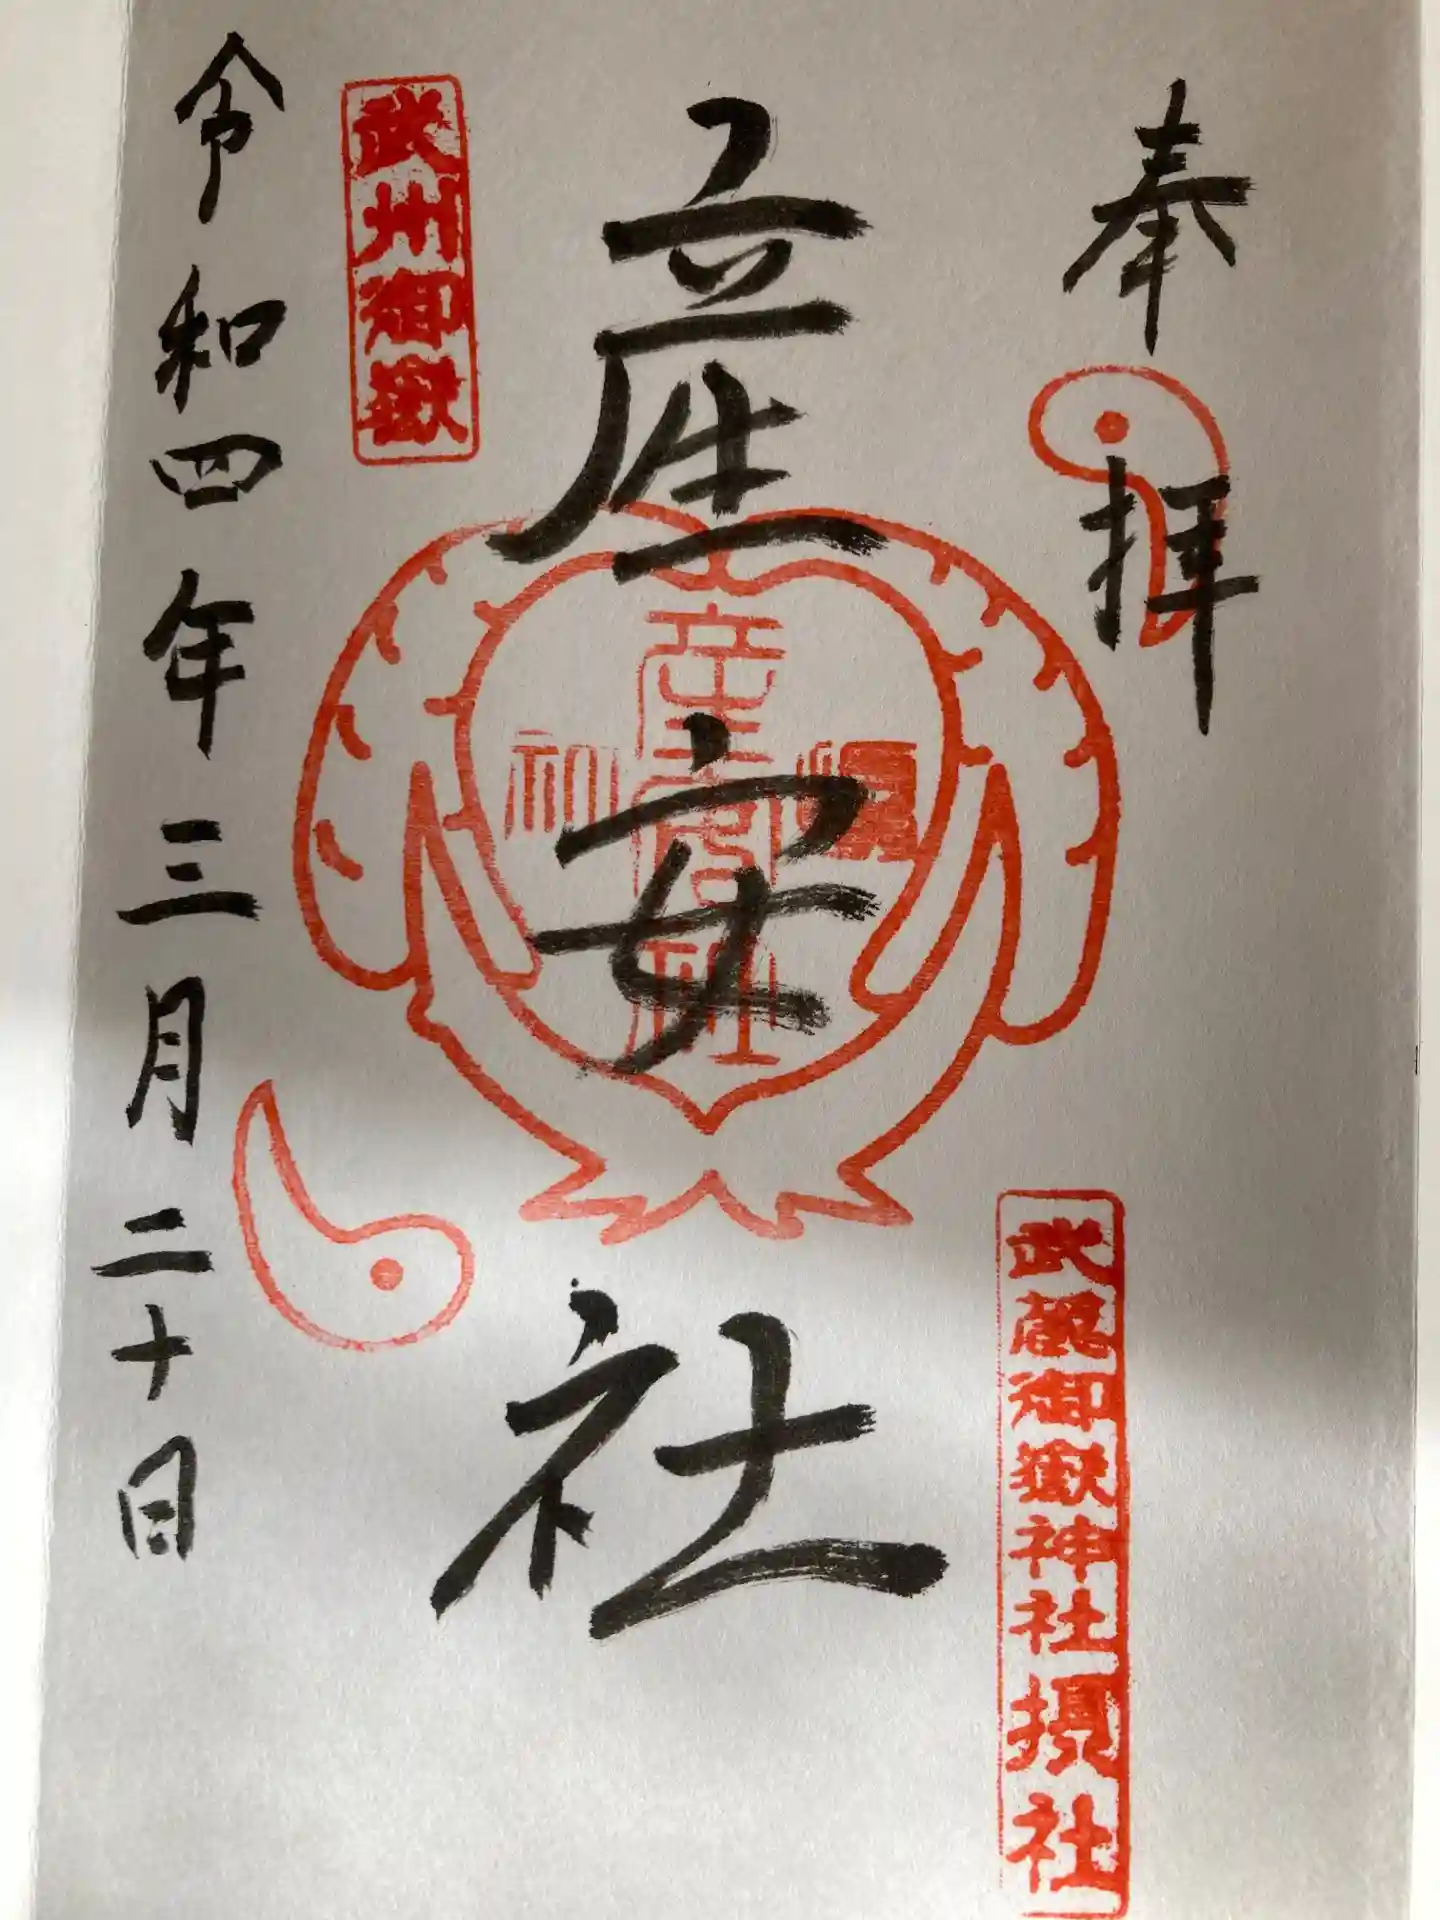 奉拝
武蔵御嶽神社摂社
産安社
産安社
武州御嶽
令和四年三月二十日